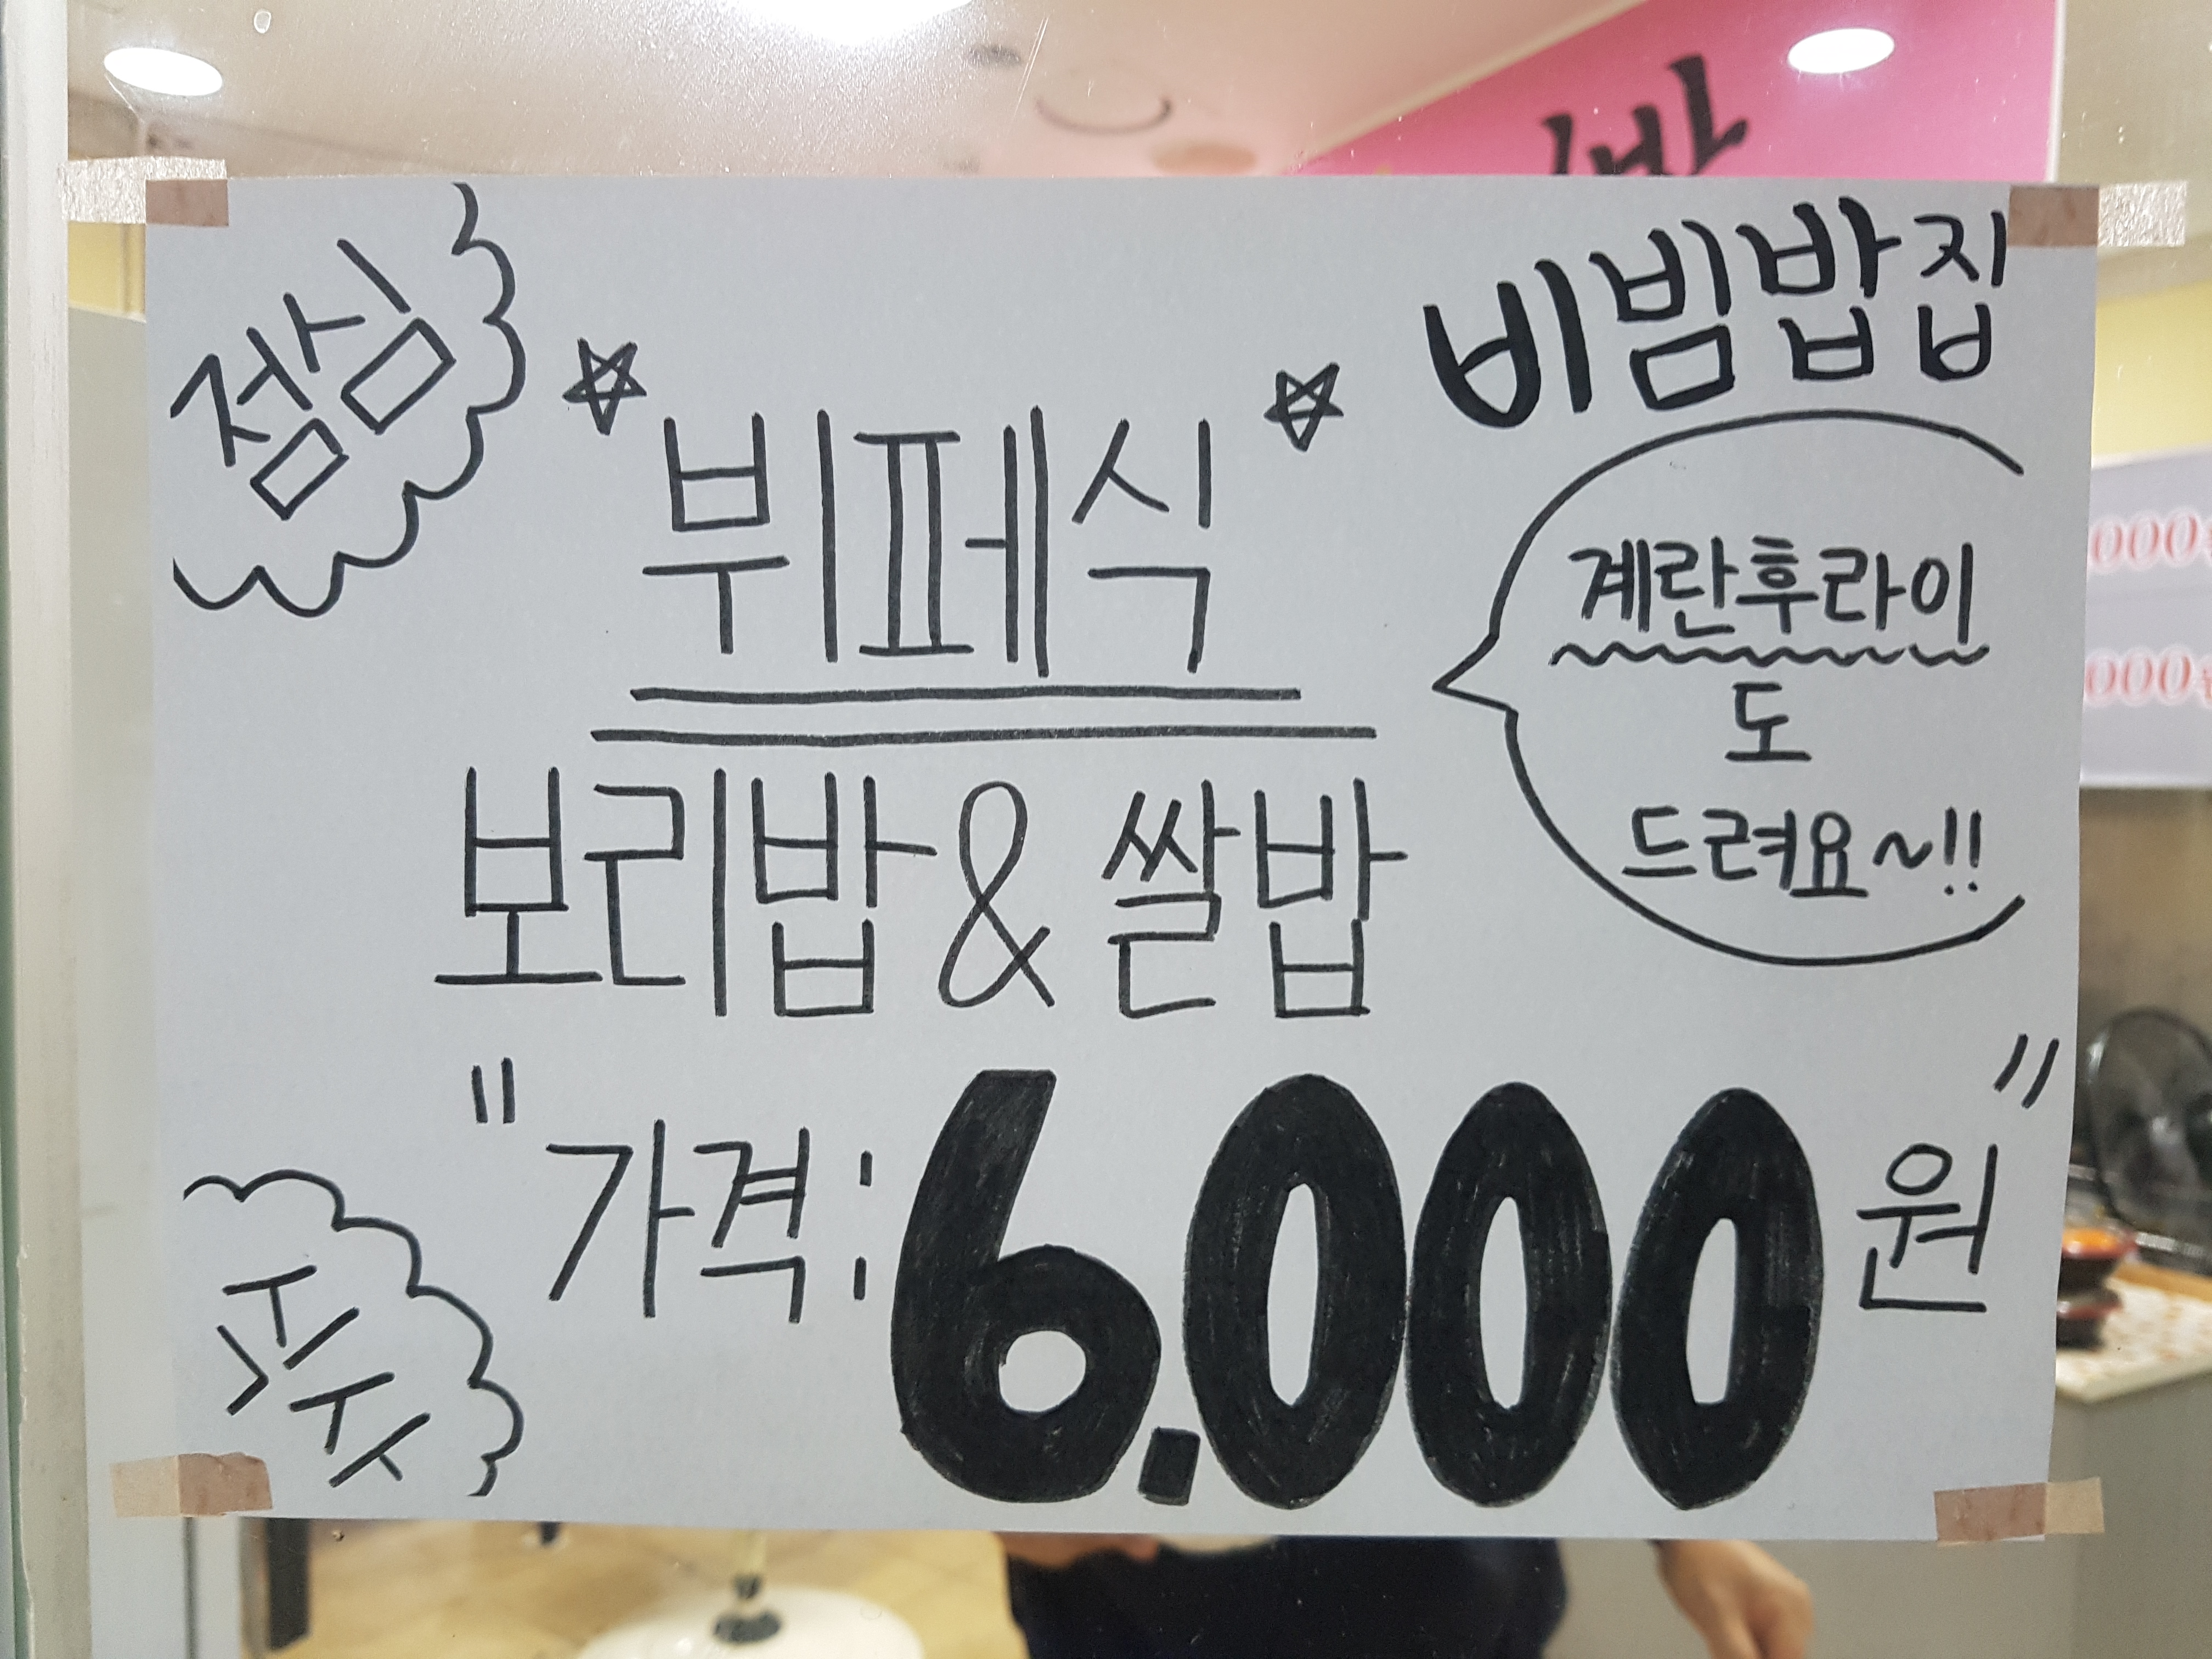 점심
비빔밥집
☆ 뷔페식 ☆
계란후라이
도
드려요~!!
보리밥 & 쌀밥
"가격: 6.000원"